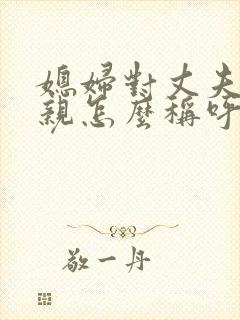 媳婦對丈夫
親怎麼稱呼
敬一丹